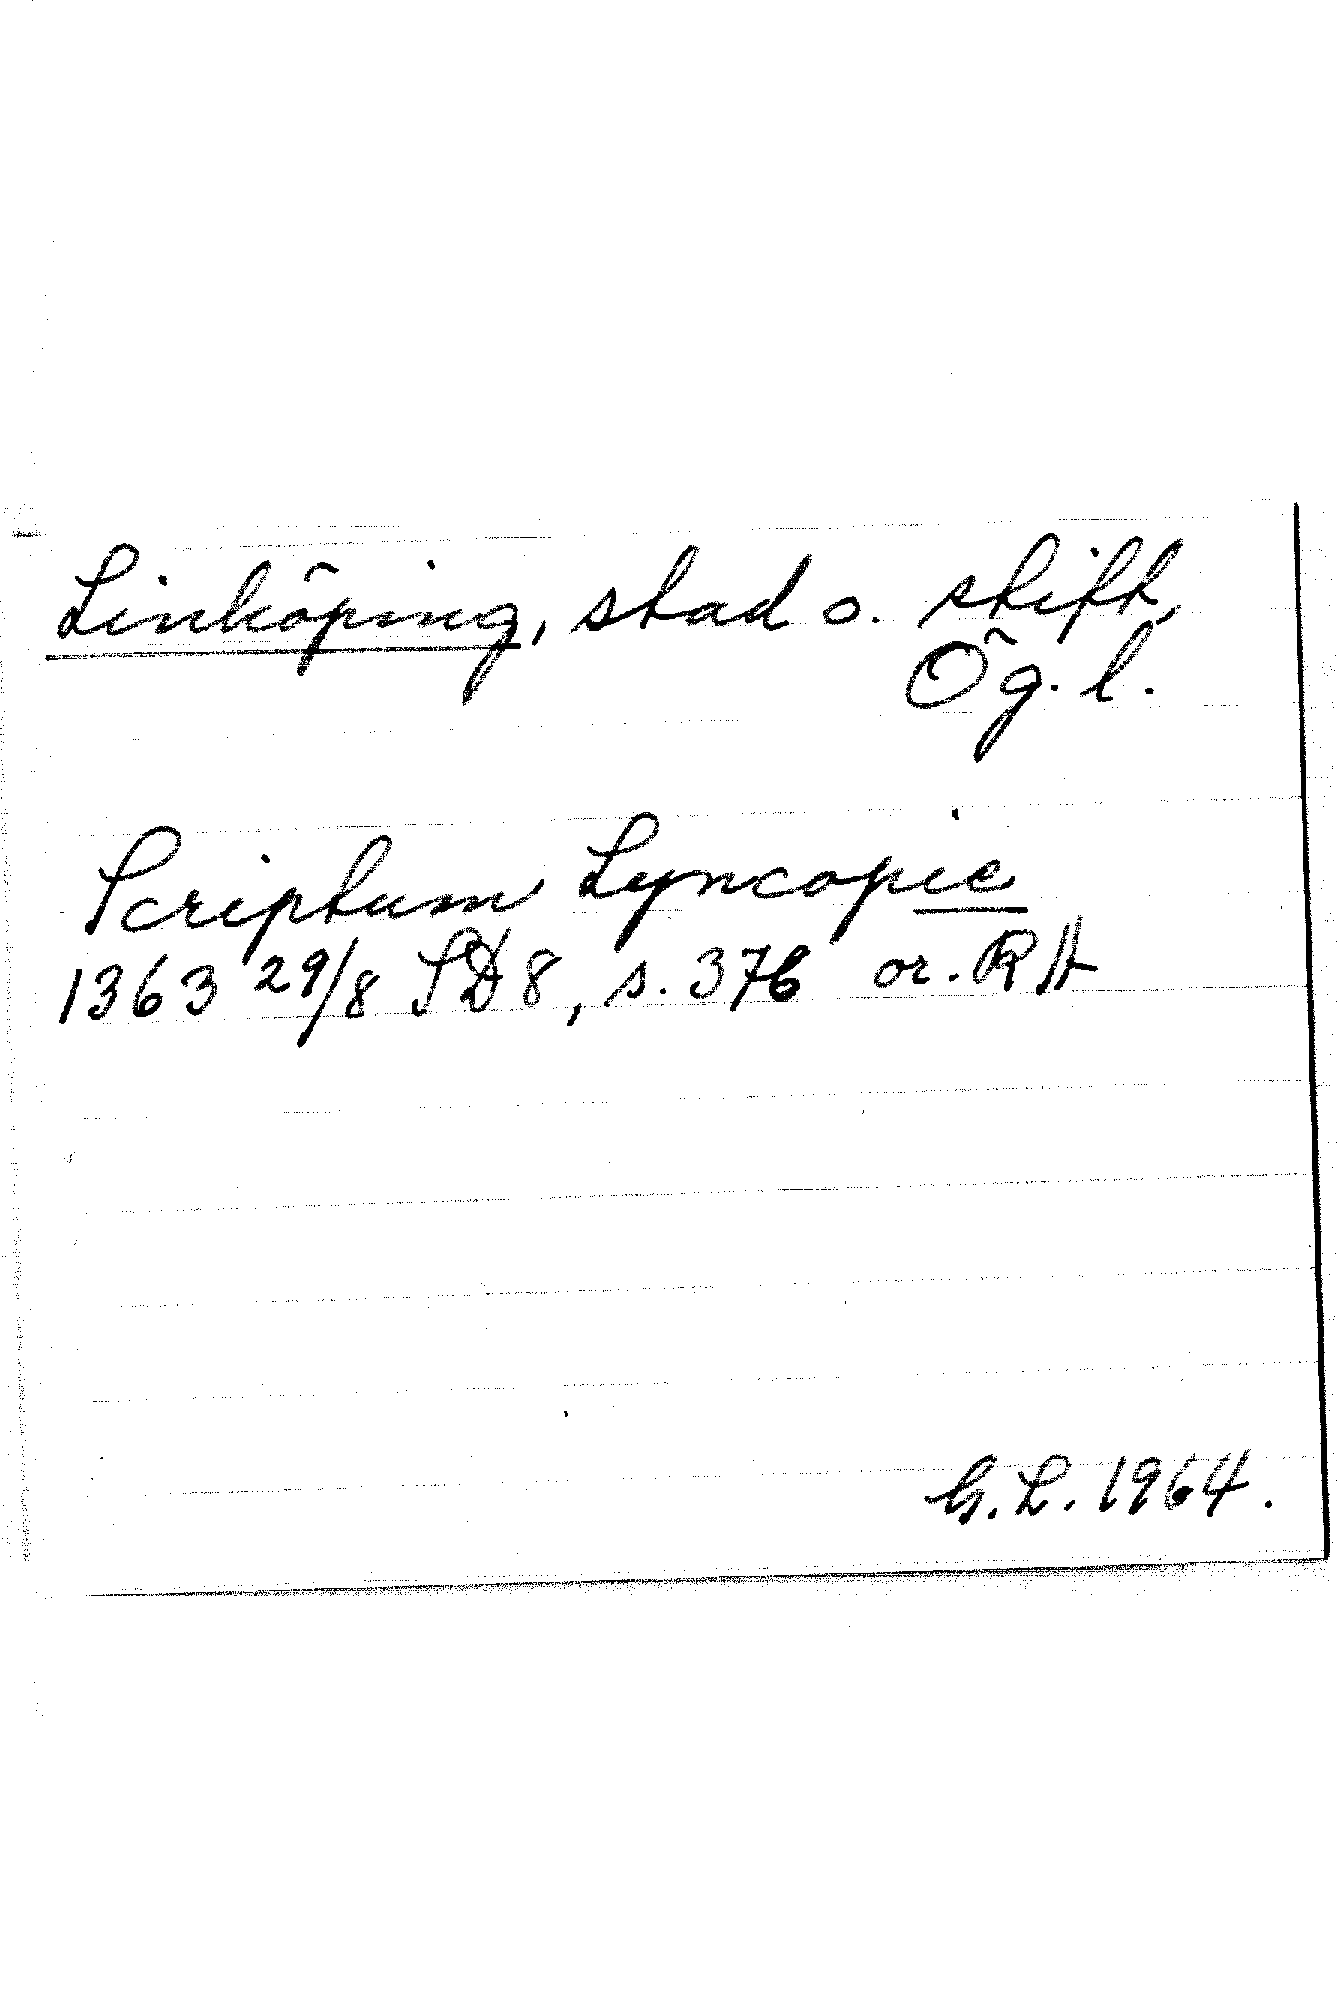 Linköping, stad o. stift,
Ög. l.
Scriptum Lyncopie
1363 29/8 SD 8, s. 376 or. RA
G. L. 1964.